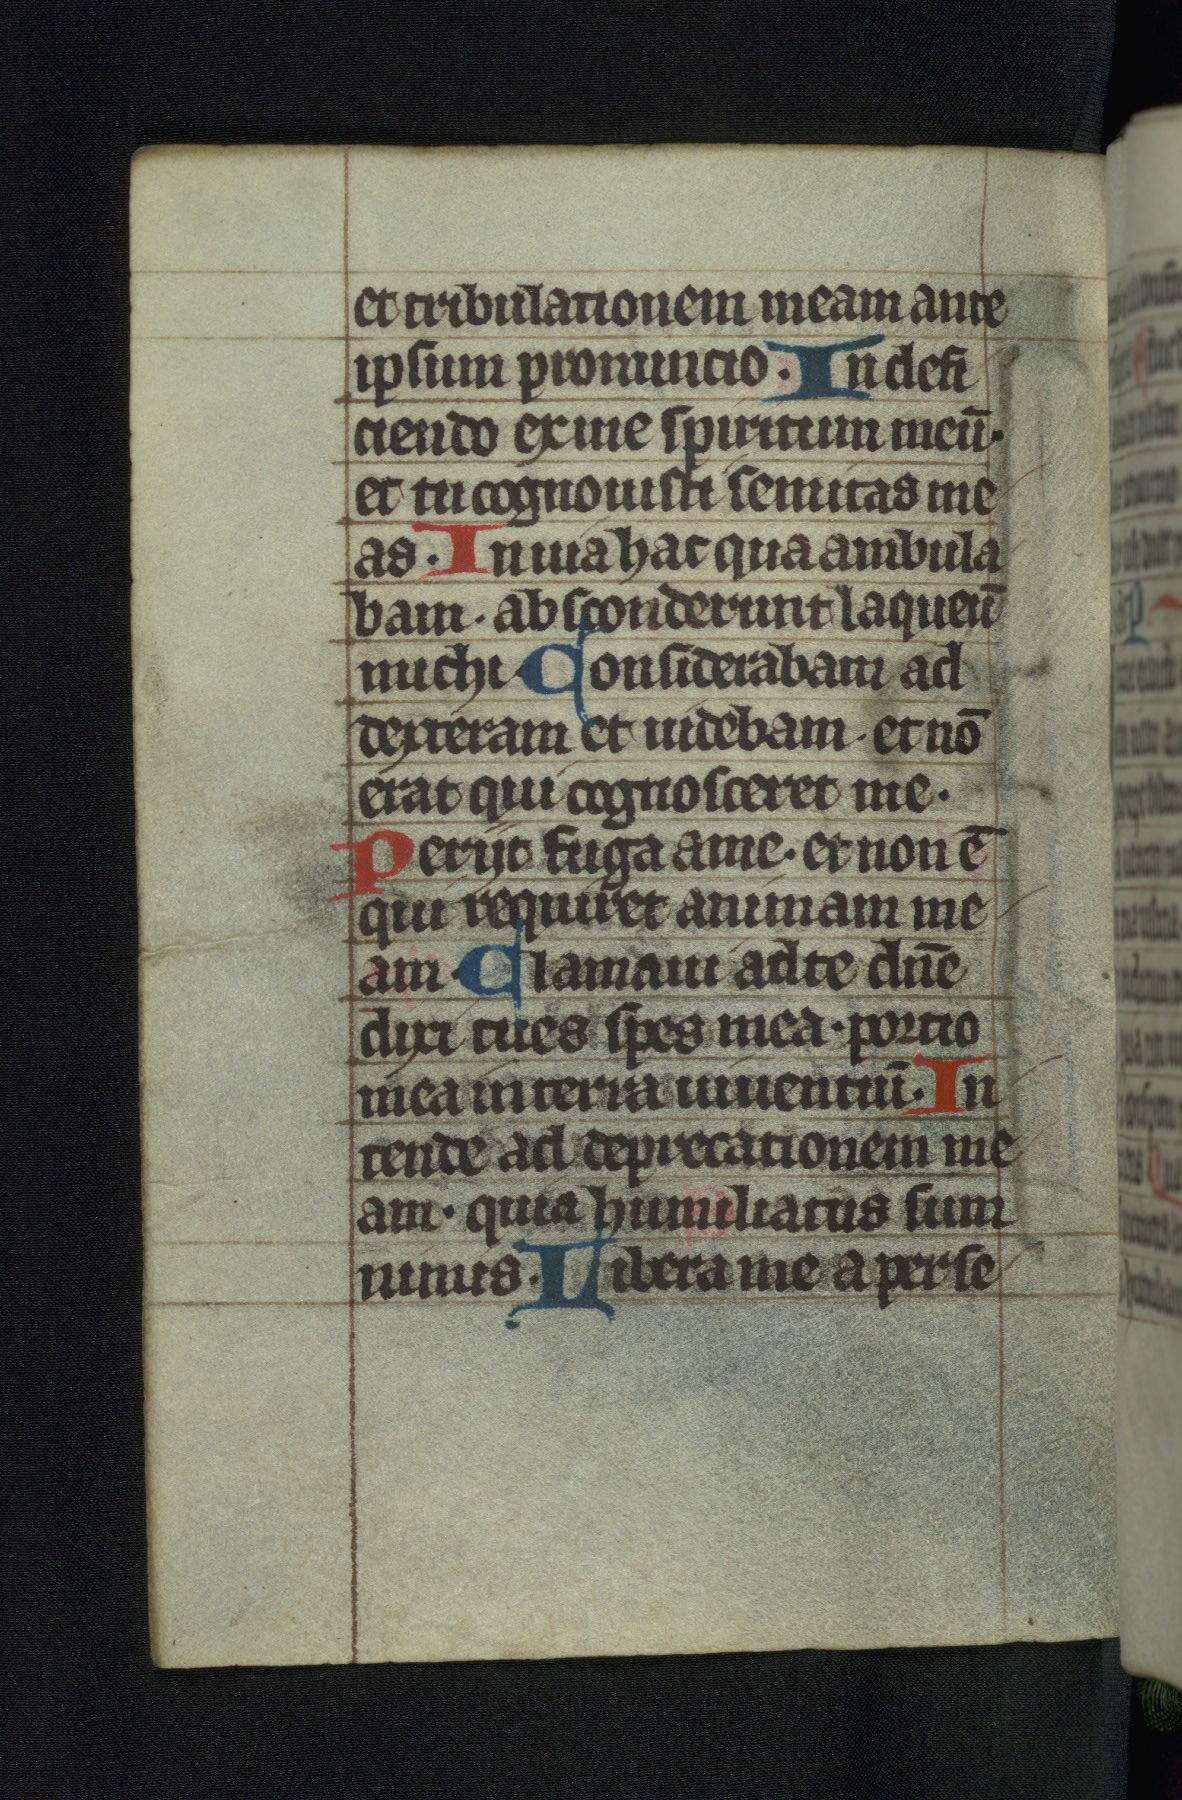 et tribulationem meam ante
ipsum pronuncio · In defi
ciendo ex me spiritum meū·
et tu cognouisti semitas me
as · In uia hac qua ambula
bam · absconderunt laqueū
michi · Considerabam ad
dexteram et uidebam · et nō
erat qui cognosceret me ·
Perijt fuga a me · et non ē
qui requiret animam me
am · Clamaui ad te dn̄e
dixi tu es spes mea · portio
mea in terra uiuentiū · In
tende ad deprecationem me
am · quia humiliatus sum
nimis · Libera me a perse